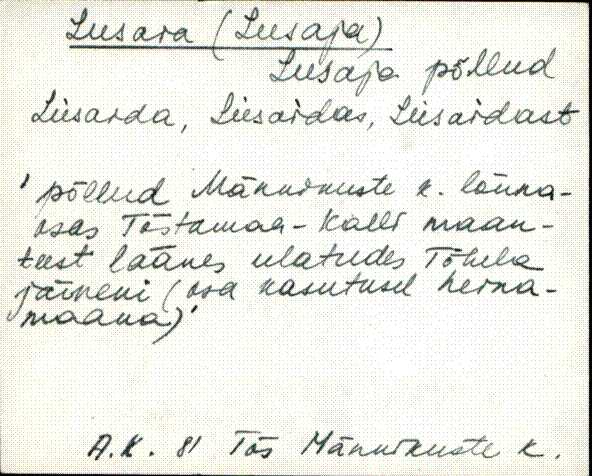 Liisara (Liisaja)
Liisaja põllud
Liisarda, Liisardas, Liisardast
'põllud Männikuste k. lõuna-
osas Tõstamaa-Kalli maan-
teest läänes ulatudes Tõhela
järveni (osa kasutusel heina-
maana)'
A.K. 81 Tõs Männikuste k.